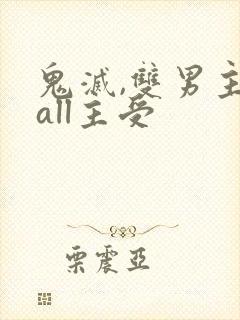 鬼滅,雙男主
all主受
栗震亞